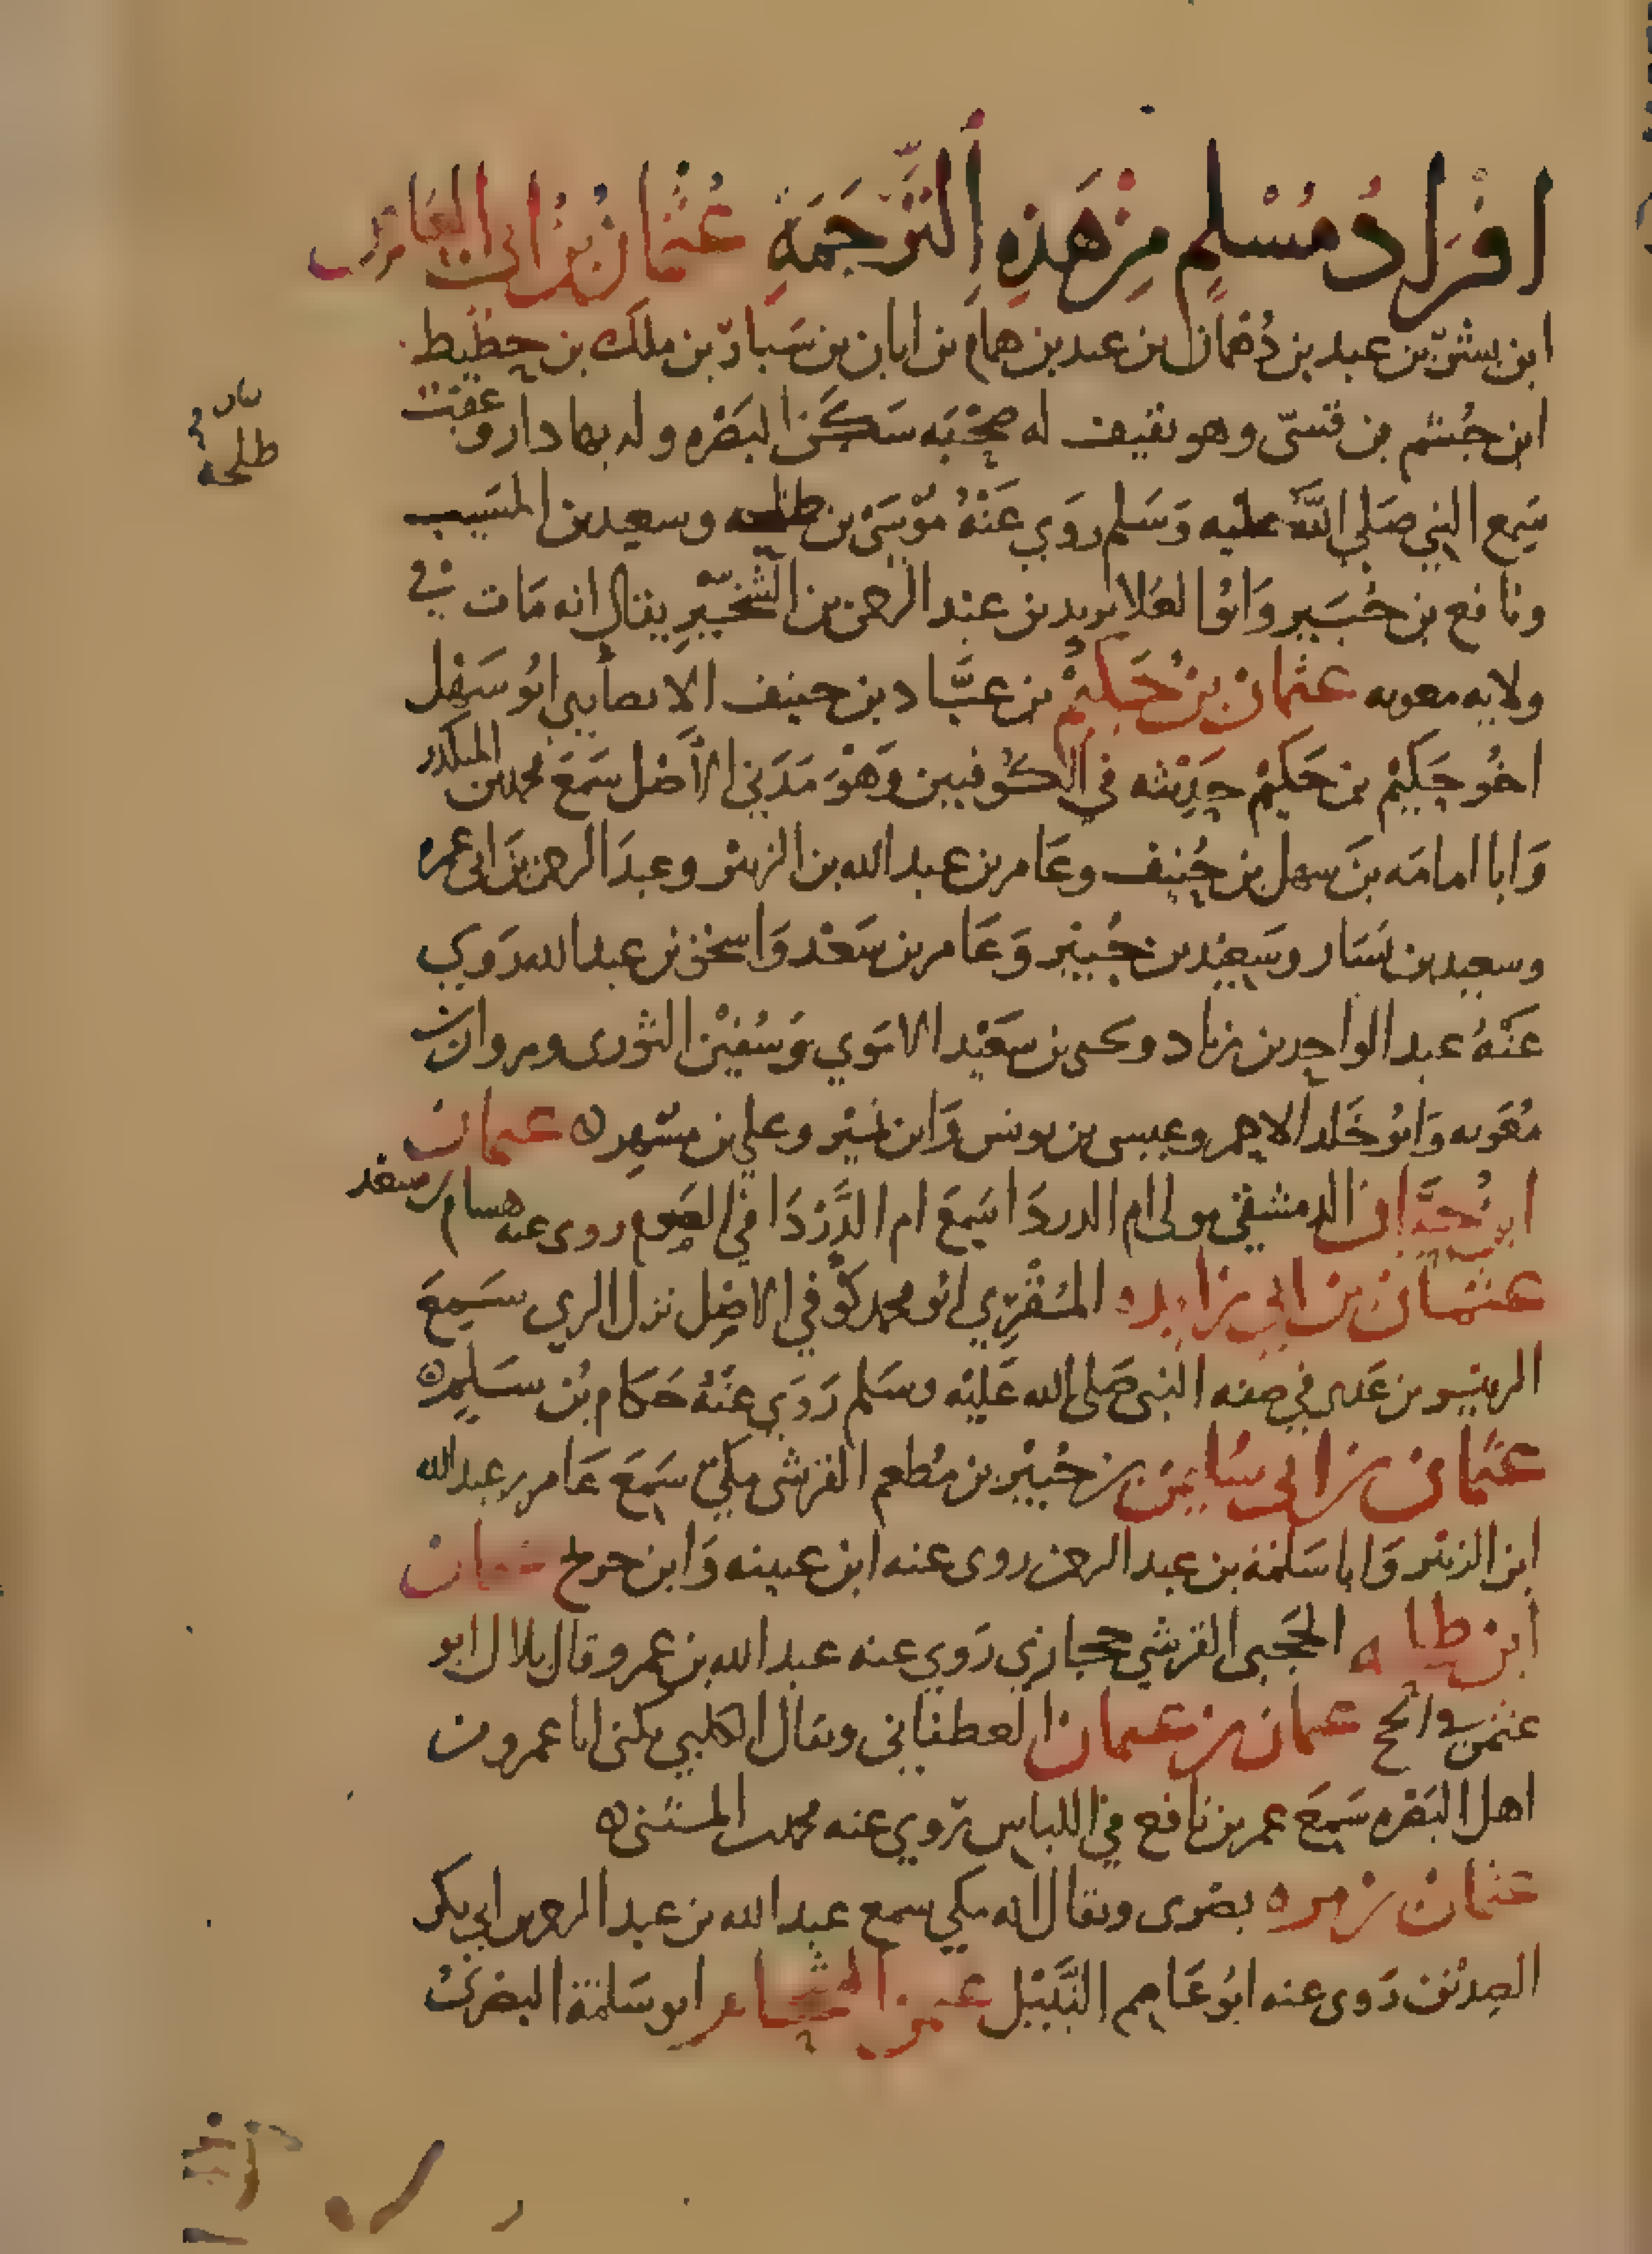 افراد مسلم من هذه الترجمة عثمان بن ابي العاص
ابن بشر بن عبد بن دهمان بن عبد بن همام بن ابان بن سيار بن ملك بن حطيط
ابن جشم بن قسي وهو ثقيف له صحبه سكن البصره وله بها دار وعقب
سمع النبي صلى الله عليه وسلم روي عنه موسى بن طلحه وسعيد بن المسيب
بيان طلحه
ونافع بن جبير وابو العلا يزيد بن عبد الرحمن بن الشخير يقال انه مات في
ولايه معويه عثمان بن حكيم بن عباد بن حنيف الانصاري ابو سهل
اخو حكيم بن حكيم حديثه في الكوفيين وهو مدني الاصل سمع محمد بن المنكدر
وابا امامه بن سهل بن حنيف وعامر بن عبد الله بن الزبير وعبد الرحمن بن ابي عمره
وسعيد بن يسار وسعيد بن جبير وعامر بن سعد واسحق بن عبد الله روي
عنه عبد الواحد بن زياد ويحيى بن سعيد الاموي وسفين الثوري ومروان بن
معويه وابو خلد الاحمر وعيسى بن يونس وابن نمير وعلي بن مسهر عثمان
ابن حيان الدمشقي مولى ام الدردا سمع ام الدردا في الصوم روى عنه هشام بن سعد
عثمان بن ابي زايده المقري ابو محمد كوفي الاصل نزل الري سمع
الزبير بن عدي في صفه النبي صلى الله عليه وسلم روي عنه حكام بن سلم
عثمان بن ابي سليمن بن جبير بن مطعم القرشي مكي سمع عامر بن عبد الله
ابن الزبير وابا سلمة بن عبد الرحمن روى عنه ابن عيينه وابن جريج عثمان
ابن طلحه الحجبي القرشي حجازي روي عنه عبد الله بن عمر وقال بلال ابو
عثمن في الحج عثمان بن عثمان الغطفاني ويقال الكلبي يكنى ابا عمرو من
اهل البصره سمع عمر بن نافع في اللباس روي عنه محمد بن المثنى
عثمان بن مره بصرى ويقال انه مكي سمع عبد الله بن عبد الرحمن بن ابي بكر
الصديق روى عنه ابو عاصم النبيل عثمن الشحام ابو سلمة البصري